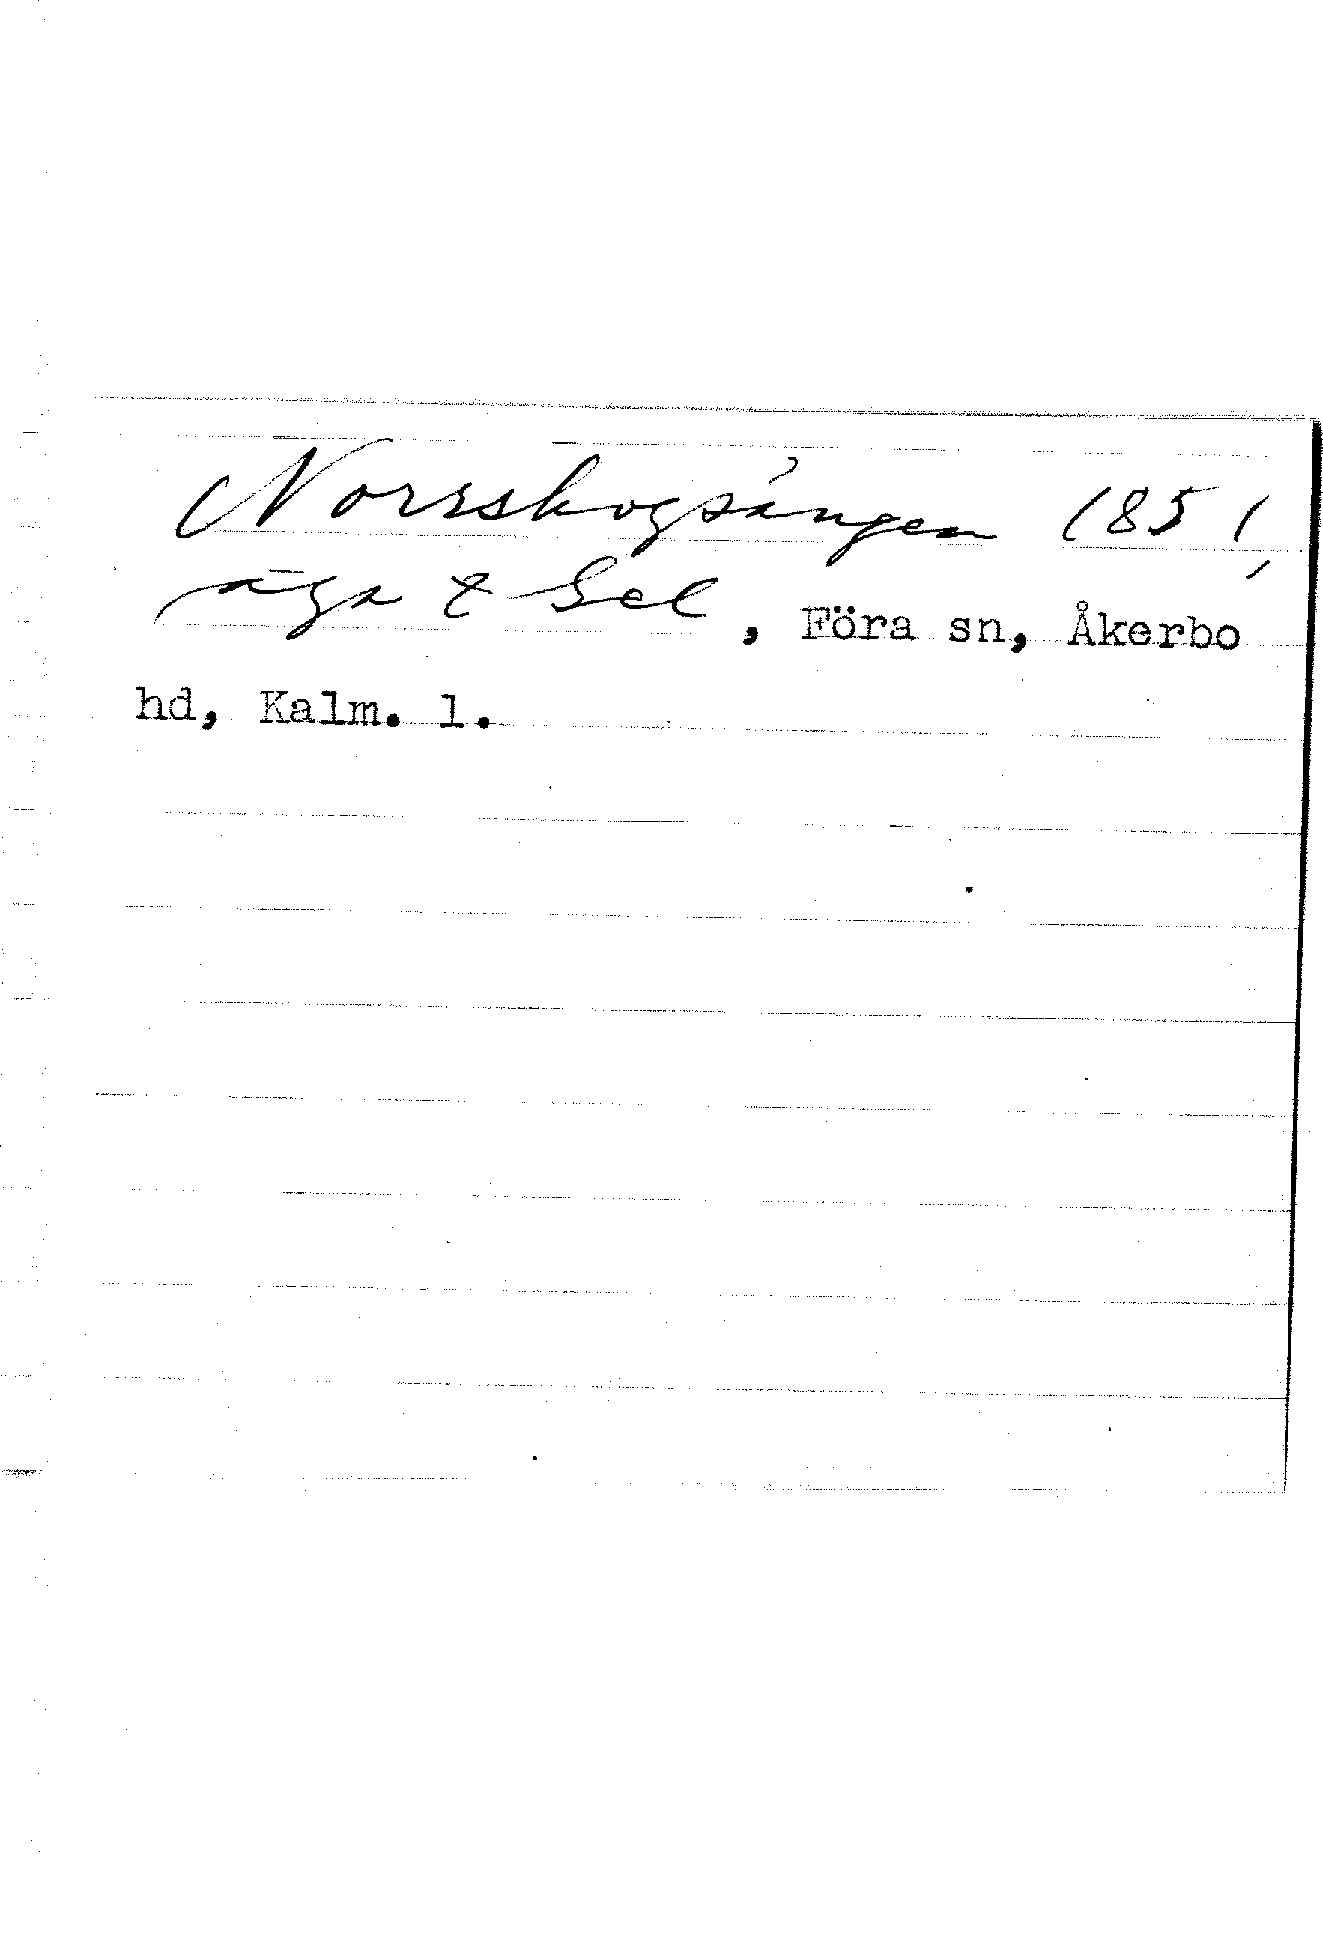 Norrskogsängen 1851,
äga t Gel, Föra sn, Åkerbo
hd, Kalm. l.